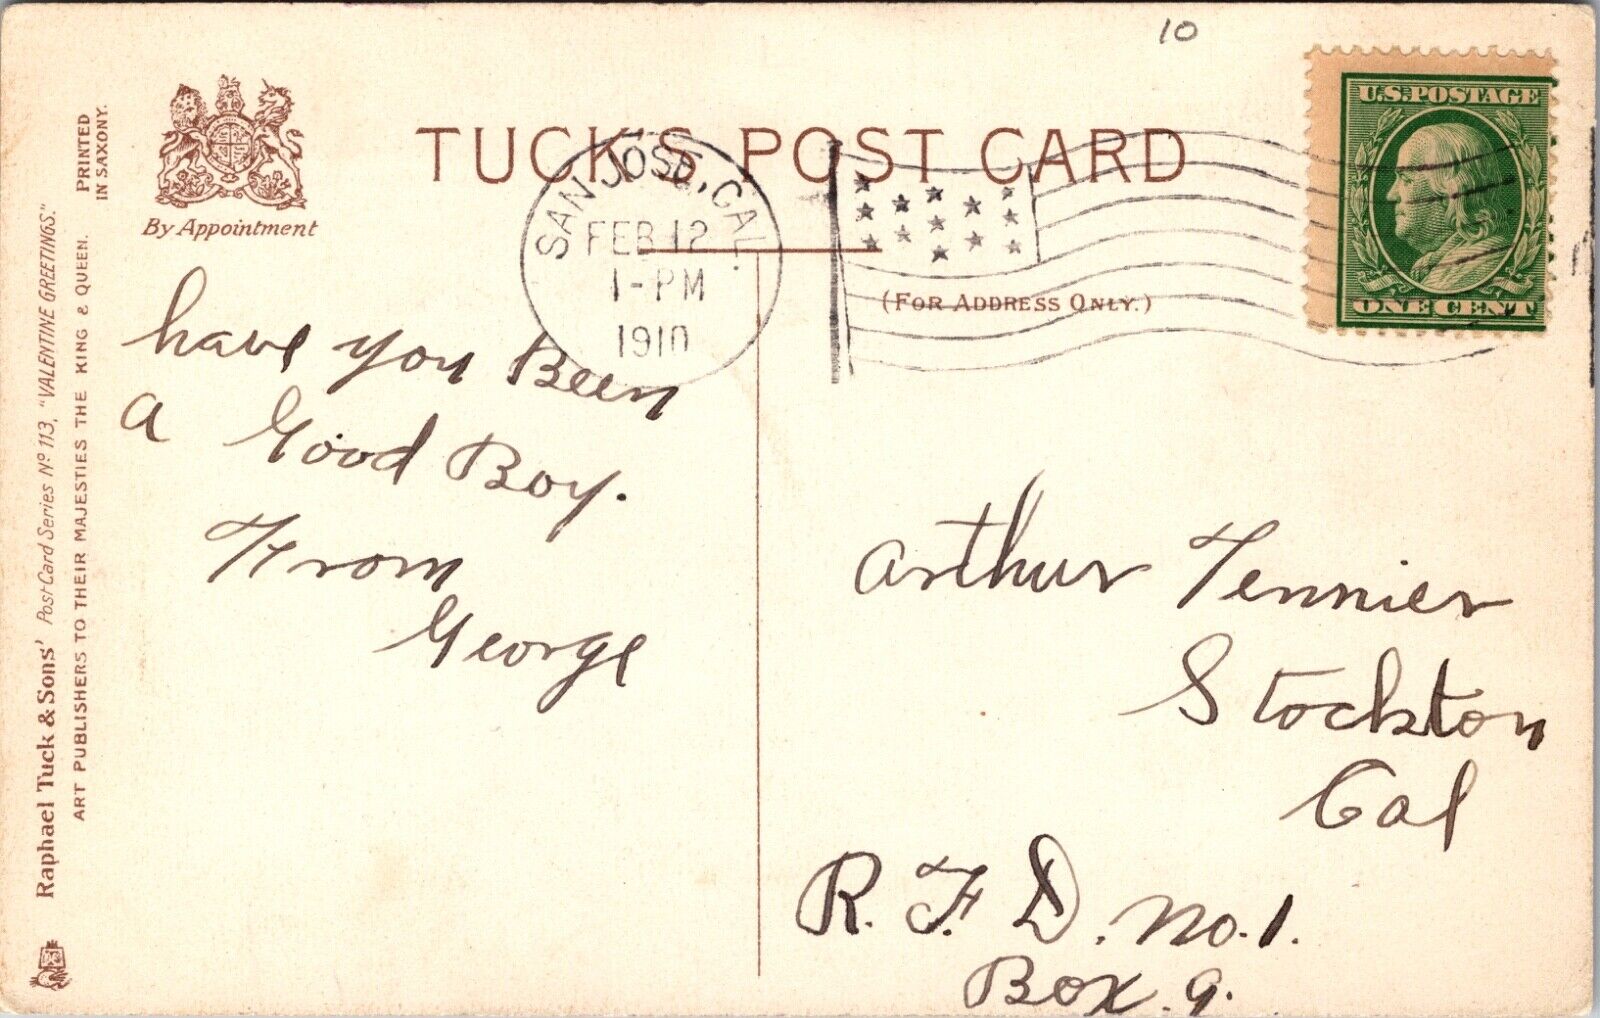 10
U.S. POSTAGE
ONE CENT
TUCK'S POST CARD
By Appointment
PRINTED
IN SAXONY.
Raphael Tuck & Sons' Post Card Series Nº 113, "VALENTINE GREETINGS."
ART PUBLISHERS TO THEIR MAJESTIES THE KING & QUEEN.
SAN JOSE, CAL.
FEB 12
1-PM
1910
(FOR ADDRESS ONLY.)
have you Been
a Good Boy.
From
George
Arthur Tennier
Stockton
Cal
R. F. D. No. 1.
Box. 9.